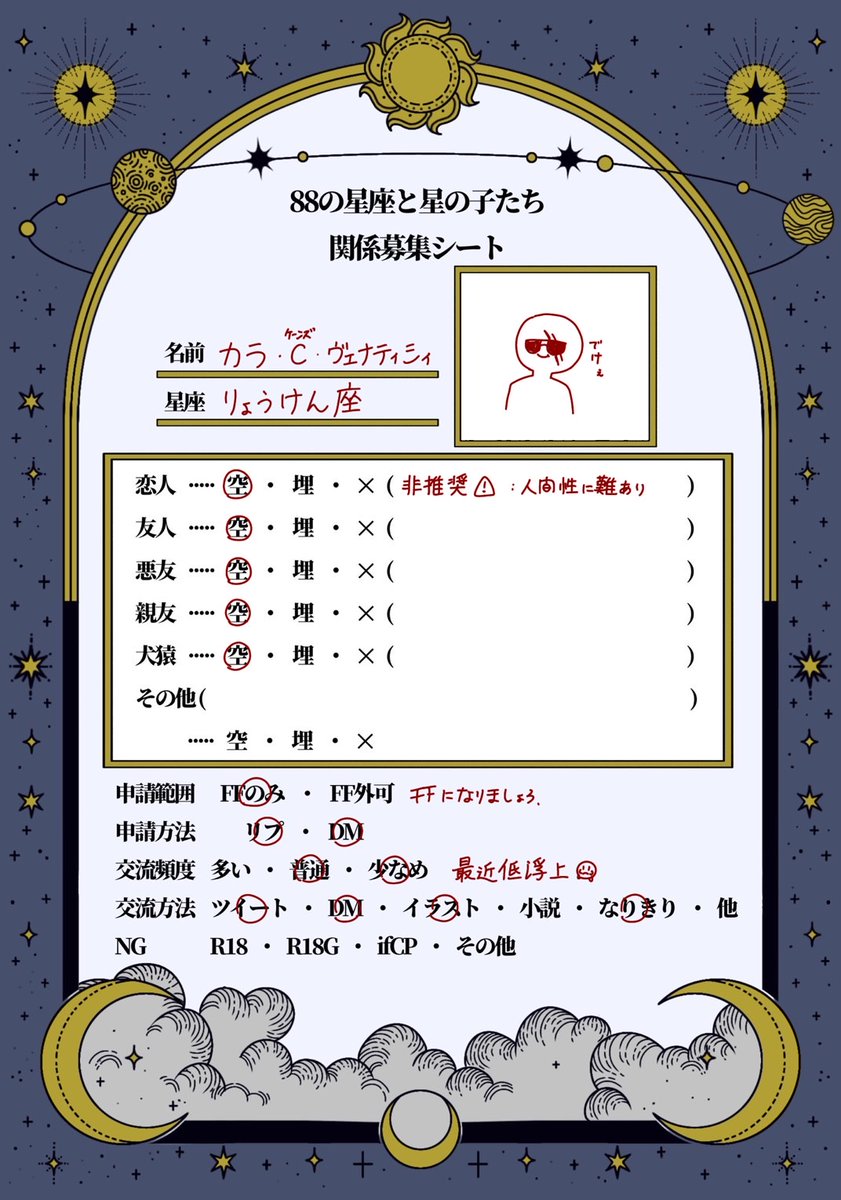 88の星座と星の子たち
関係募集シート
ケーンズ
名前 カラ・C・ヴェナティシィ
でけぇ
星座 りょうけん座
恋人 ····· 空 ・ 埋 ・ × ( 非推奨⚠ : 人間性に難あり )
友人 ····· 空 ・ 埋 ・ × ( )
悪友 ····· 空 ・ 埋 ・ × ( )
親友 ····· 空 ・ 埋 ・ × ( )
犬猿 ····· 空 ・ 埋 ・ × ( )
その他 ( )
····· 空 ・ 埋 ・ ×
申請範囲 FFのみ ・ FF外可 FFになりましょう、
申請方法 リプ ・ DM
交流頻度 多い ・ 普通 ・ 少なめ 最近低浮上
交流方法 ツイート ・ DM ・ イラスト ・ 小説 ・ なりきり ・ 他
NG R18 ・ R18G ・ ifCP ・ その他